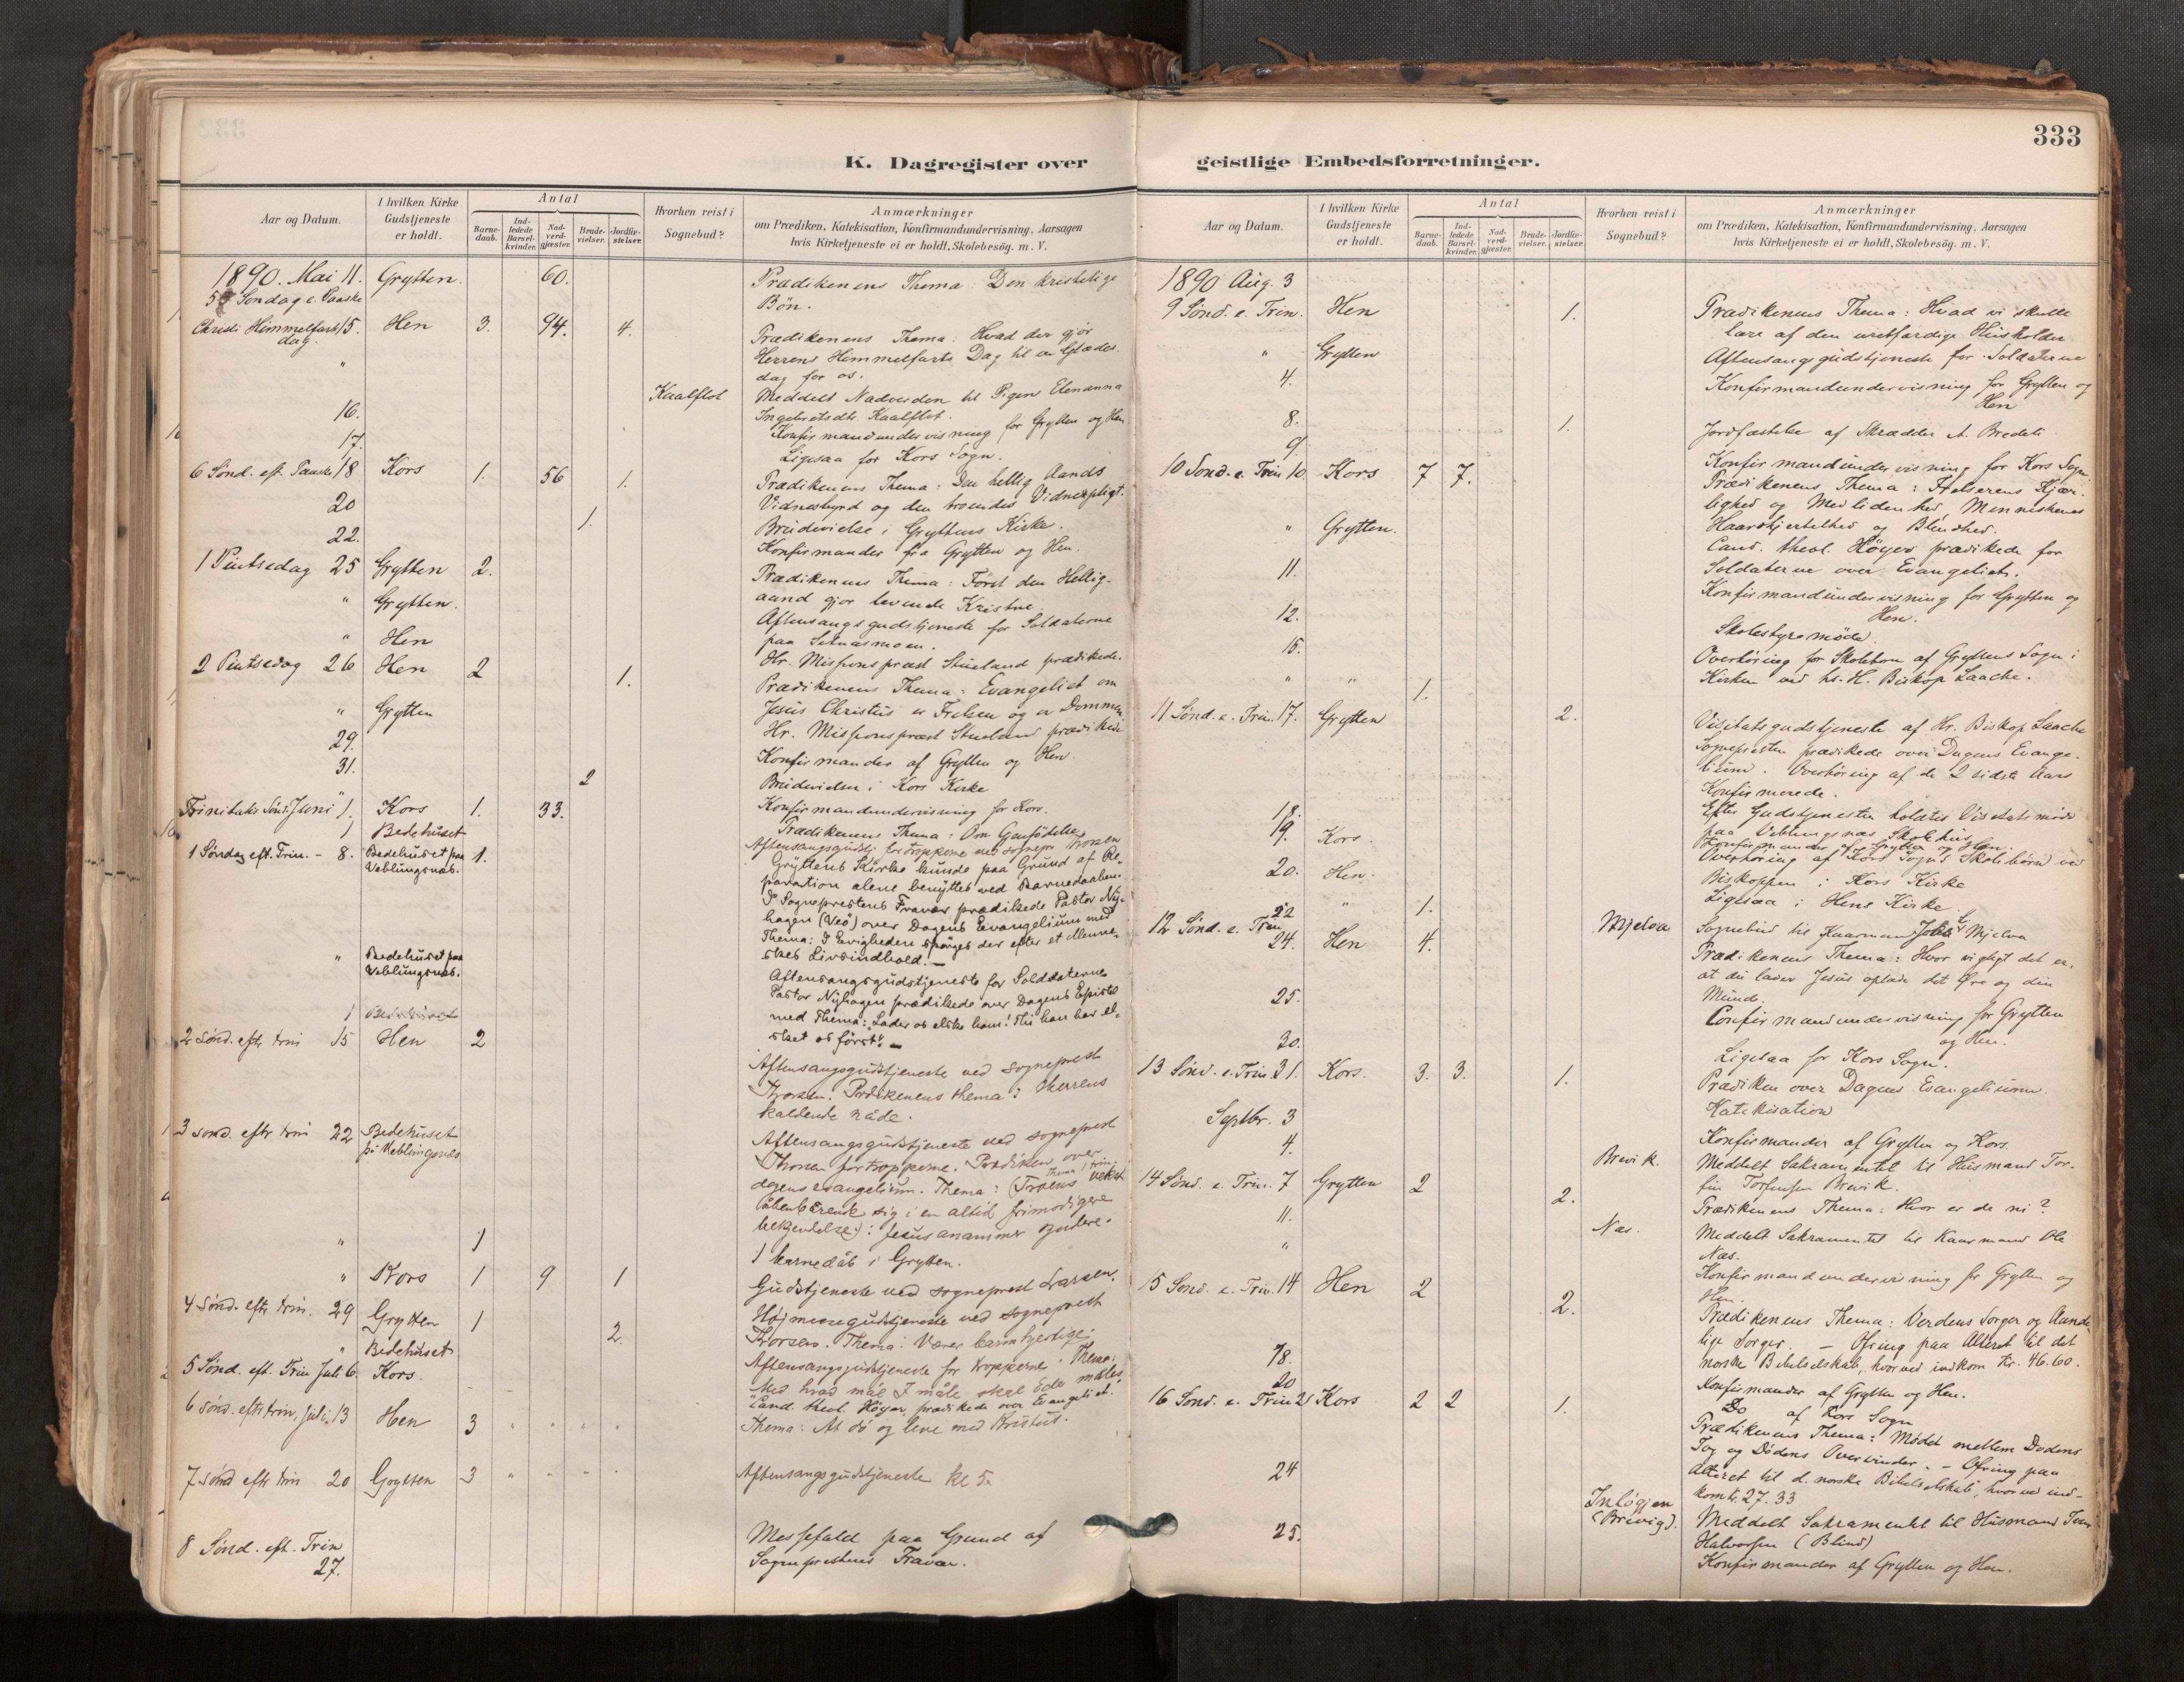 333
K. Dagregister over
geistlige Embedsforretninger.
Aar og Datum.
I hvilken Kirke Gudstjeneste er holdt.
Antal
Barne-daab.
Ind-ledede Barsel-kvinder.
Nad-verd-gjæster.
Brude-vielser.
Jordfæ-stelser.
Hvorhen reist i Sognebud?
Anmærkninger
om Prædiken, Katekisation, Konfirmandundervisning, Aarsagen
hvis Kirketjeneste ei er holdt, Skolebesög. m. V.
1890. Mai 11. Grytten. 60. Prædikenens Thema: Den kristelige
5 Söndag e. Paaske Bön.
Christi Himmelfarts 15. Hen 3. 94. 4. Prædikenens Thema: Hvad der gjör
dag. Herrens Himmelfarts Dag til en Glædes
dag for os.
" Kaalflot Meddelt Nadverden til Pigen Elenanna
Ingebretsdtr. Kaalflot.
16. Konfirmandundervisning for Grytten og Hen
17. Ligesaa for Kors Sogn.
6 Sönd. eft. Paaske 18 Kors 1. 56 1. Prædikenens Thema: Den hellig Aands
Vidnesbyrd og den troendes Vidnespligt.
20 1. Brudevielse i Gryttens Kirke.
22. Konfirmander fra Grytten og Hen.
1 Pintsedag 25 Grytten 2. Prædikenens Thema: Först den Hellig-
aand gjör levende Kristne
" Grytten. Aftensangsgudstjeneste for Soldaterne
paa Setnæsmoen.
" Hen Hr. Missionsprest Stueland prædikede.
2 Pintsedag 26 Hen 2 1. Prædikenens Thema: Evangeliet om
Jesus Christus er Frelsen og er Dommen
" Grytten Hr. Missionsprest Stueland prædikede
29. Konfirmander af Grytten og Hen
31. 2 Brudevielser i Kors Kirke
" Konfirmandundervisning for Kors.
Trinitatis Sönd. Juni 1. Kors 1. 33. Prædikenens Thema: Om Genfödelse.
1 Bedehuset Aftensangsgudstj. for tropperne ved sognepr. Thorsen
1 Söndag eft. Trin. - 8. Bedehuset paa Veblungsnæs. 1. Gryttens Kirke kunde paa Grund af Re-
paration alene benyttes ved Barnedaaben.
I Sogneprestens Fravær prædikede Pastor Ny-
hagen (Veö) over Dagens Evangelium med
Thema: I Evigheden spörges der efter et Menne-
skes Livsindhold.—
" Bedehuset paa Veblungsnæs. Aftensangsgudstjeneste for Soldaterne
Pastor Nyhagen prædikede over Dagens Epistel
med Thema: "Lader os elske ham! Thi han har el-
sket os först". —
1 Bedehuset
2 Sönd. eftr trin 15 Hen 2 Aftensangsgudstjeneste ved sogneprest
Thorsen. Prædikenens thema: Herrens
kaldende nåde.
3 sönd. eftr trin 22 Bedehuset på Veblungsnæs Aftensangsgudstjeneste ved sogneprest
Thorsen for tropperne. Prædiken over
dagens evangelium. Thema: (Troens vækst
åbenbarende sig i en altid frimodigere
bekjendelse): Jesus anammer syndere.
" 1 1 barnedåb i Grytten.
" Kors 1 9 1 Gudstjeneste ved sogneprest Larsen.
4 Sönd. eftr. trin. 29 Grytten 1 2. Höjmessegudstjeneste ved sogneprest
Thorsen. Thema: Værer barmhjertige.
" Bedehuset Aftensangsgudstjeneste for tropperne. Thema:
Med hvad mål I måle skal Eder måles.
5 Sönd. eft. Trin Juli 6. Kors. Cand. theol. Höyer prædikede over Evangeliet.
6 sönd. eftr trin, juli 13 Hen 3 Thema: At dö og leve med Kristus.
7 sönd eftr trin 20 Grytten 3 Aftensangsgudstjeneste kl 5.
8 Sönd. eft. Trin 27. Messefald paa Grund af
Sogneprestens Fravær.
Aar og Datum.
I hvilken Kirke Gudstjeneste er holdt.
Antal
Barne-daab.
Ind-ledede Barsel-kvinder.
Nad-verd-gjæster.
Brude-vielser.
Jordfæ-stelser.
Hvorhen reist i Sognebud?
Anmærkninger
om Prædiken, Katekisation, Konfirmandundervisning, Aarsagen
hvis Kirketjeneste ei er holdt, Skolebesög. m. V.
1890 Aug. 3
9 Sönd. e. Trin. Hen 1. Prædikenens Thema: Hvad vi skulle
lære af den uretfærdige Husholder.
" Grytten Aftensangsgudstjeneste for Soldaterne
4. Konfirmandundervisning for Grytten og
Hen
8. 1. Jordfæstelse af Skrædder A. Bredeli
9. Konfirmandundervisning for Kors Sogn
10 Sönd. e. Trin 10. Kors 7 7. Prædikenens Thema: Frelserens Kjær-
lighed og Medlidenhed, Menneskenes
Haardhjertethed og Blindhed.
" Grytten. Cand. theol. Höyer prædikede for
Soldaterne over Evangeliet.
11. Konfirmandundervisning for Grytten og
Hen.
12. Skolestyremöde.
15. Overhöring for Skolebörn af Gryttens Sogn i
Kirken ved hr. H. Biskop Laache.
" " 1.
11 Sönd. e. Trin. 17. Grytten 2. Visitatsgudstjeneste af Hr. Biskop Laache
Sognepresten prædikede over Dagens Evange-
lium. Overhöring af de 2 sidste Aars
Konfirmerede.
Efter Gudstjenesten holdtes Visitatsmöde
paa Veblungsnæs Skolehus.
18. Konfirmander af Grytten og Hen.
19. Kors. Overhöring af Kors Sogns Skolebörn ved
Biskoppen i Kors Kirke
20. Hen. Ligesaa i Hens Kirke
22 " 1. Mjelva Sognebud til Kaarmand Mjelva
12 Sönd. e. Trin 24. Hen 4. Prædikenens Thema: Hvor vigtigt det er,
at du lader Jesus oplade dit Öre og din
Mund.
25. Confirmandundervisning for Grytten
og Hen.
30. Ligesaa for Kors Sogn.
13 Sönd. e. Trin 31. Kors. 3. 3. 1. Prædiken over Dagens Evangelium.
Katekisation
Septbr. 3 Konfirmander af Grytten og Kors.
4. Brevik. Meddelt Sakramentet til Husmand Tor-
fin Torfinsen Brevik.
14 Sönd. e. Trin. 7 Grytten 2 2. Prædikenens Thema: Hvor er de ni?
11. Næs. Meddelt Sakramentet til Kaarmand Ole
Næs.
" Konfirmandundervisning for Grytten og
Hen.
15 Sönd. e. Trin. 14 Hen 2 2. Prædikenens Thema: Verdens Sorger og Aande-
lige Sorger. — Ofring paa Alteret til det
norske Bibelselskab, hvorved indkom Kr. 46.60.
18. Konfirmander af Grytten og Hen.
20 Do af Kors Sogn
16 Sönd. e. Trin 21 Kors 2 2 1. Prædikenens Thema: Mödet mellem Dödens
Tog og Dödens Overvinder. — Ofring paa
Alteret til d. norske Bibelselskab, hvorved ind-
kom kr. 27.33
24 Inlögjen (Brevig). Meddelt Sakramentet til Husmand
Halvorsen (Blind)
25. Konfirmander af Grytten og Hen.